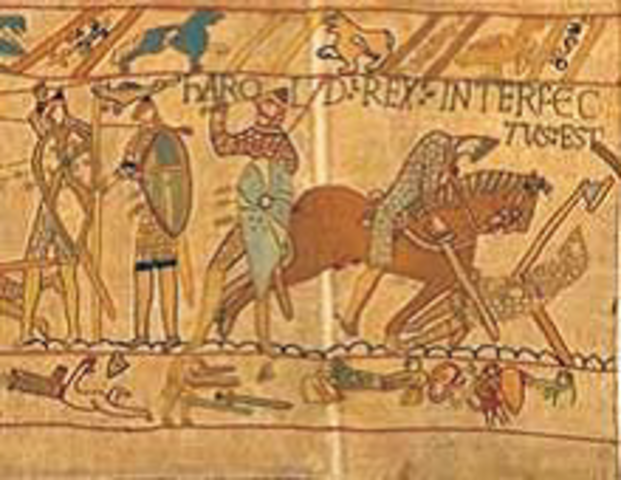 HAROLD:REX:INTERFEC
TUS:EST